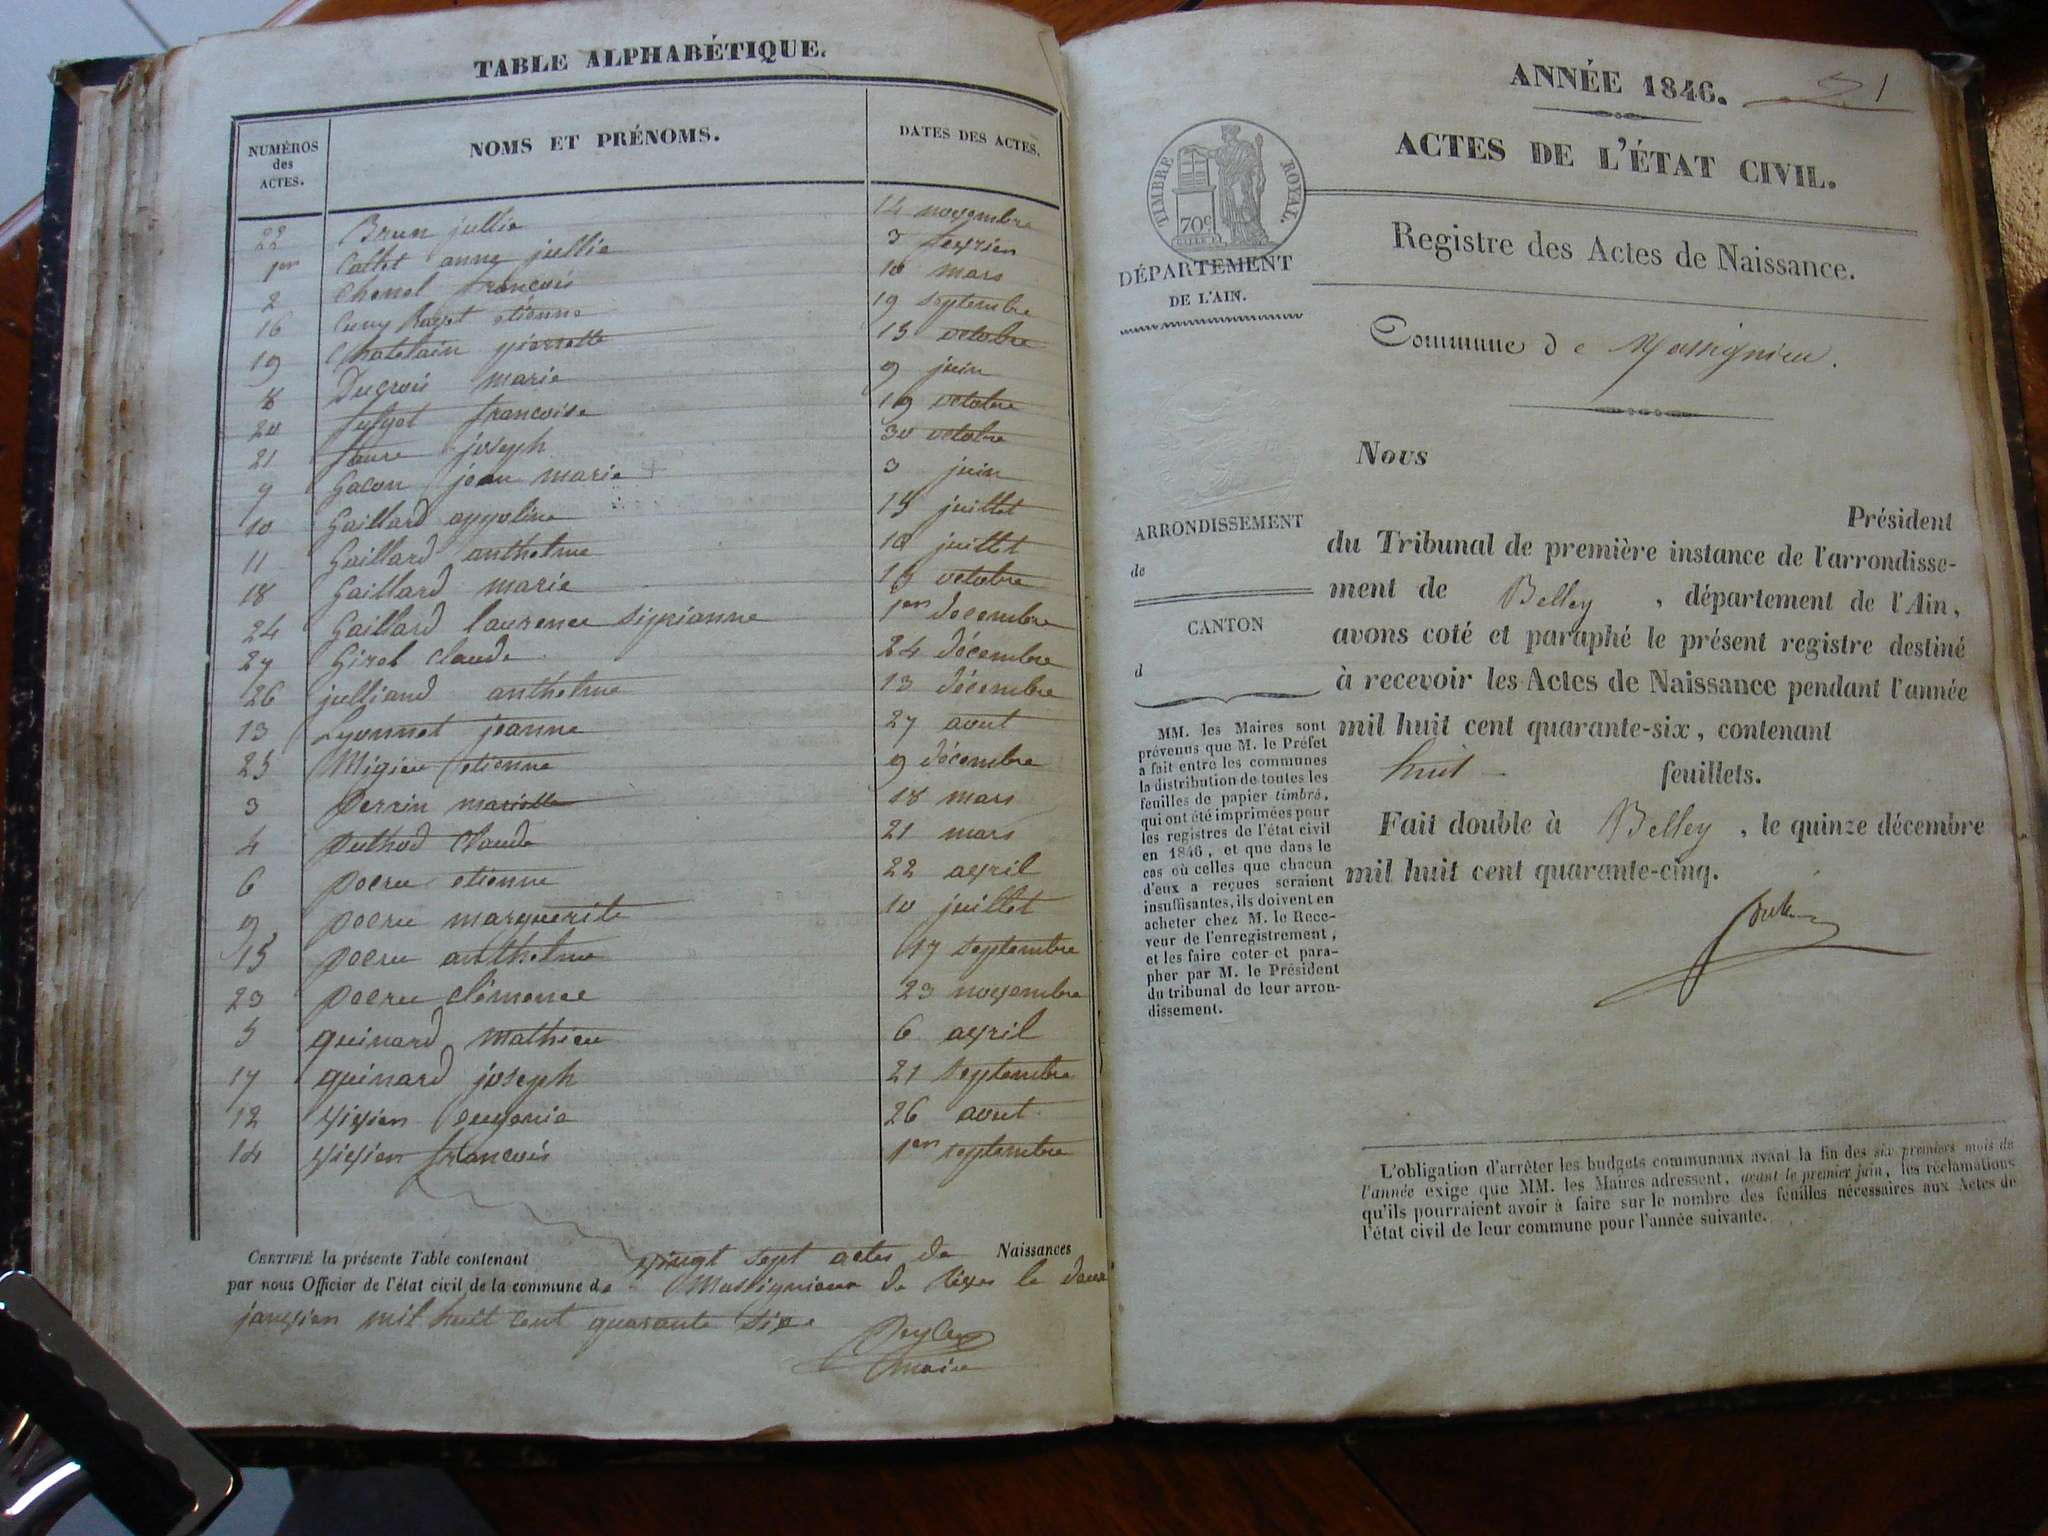 TABLE ALPHABÉTIQUE.
NUMÉROS des ACTES. NOMS ET PRÉNOMS. DATES DES ACTES.
22 Brun jullie 14 novembre
1er Collet anne jullie 3 fevrier
2 Chenel francois 10 mars
16 Cuny etienne 19 septembre
19 Chatelain pierrette 15 octobre
8 Ducroi marie 9 juin
20 francoise 19 octobre
21 faure joseph 30 octobre
9 Gacon jean marie 3 juin
10 Gaillard appoline 15 juillet
11 Gaillard anthelme 18 juillet
18 Gaillard marie 15 octobre
24 Gaillard laurence siprianne 1er decembre
27 Girel claude 24 décembre
26 julliand anthelme 13 décembre
13 Lyonnet jeanne 27 aout
25 Migieu etienne 9 décembre
3 perrin mariette 18 mars
4 puthod Claude 21 mars
6 pocru etienne 22 avril
9 pocru marguerite 10 juillet
15 pocru anthelme 17 septembre
23 pocru clémence 23 novembre
5 quinard mathieu 6 avril
17 quinard joseph 21 septembre
12 vivien eugenie 26 aout
14 vivien francois 1er septembre
CERTIFIÉ la présente Table contenant vingt sept actes de Naissances
par nous Officier de l'état civil de la commune de Massignieux de Rives le deux
janvier mil huit cent quarante six
maire
ANNÉE 1846.
ACTES DE L'ÉTAT CIVIL.
TIMBRE ROYAL.
70c
Registre des Actes de Naissance.
DÉPARTEMENT
DE L'AIN.
Commune de Massignieu.
Nous
Président
du Tribunal de première instance de l'arrondisse-
ment de Belley, département de l'Ain,
avons coté et paraphé le présent registre destiné
à recevoir les Actes de Naissance pendant l'année
mil huit cent quarante-six, contenant
huit feuillets.
Fait double à Belley, le quinze décembre
mil huit cent quarante-cinq.
ARRONDISSEMENT
de
CANTON
d
MM. les Maires sont
prévenus que M. le Préfet
a fait entre les communes
la distribution de toutes les
feuilles de papier timbré,
qui ont été imprimées pour
les registres de l'état civil
en 1846, et que dans le
cas où celles que chacun
d'eux a reçues seraient
insuffisantes, ils doivent en
acheter chez M. le Rece-
veur de l'enregistrement,
et les faire coter et para-
pher par M. le Président
du tribunal de leur arron-
dissement.
L'obligation d'arrêter les budgets communaux avant la fin des six premiers mois de
l'année exige que MM. les Maires adressent, avant le premier juin, les réclamations
qu'ils pourraient avoir à faire sur le nombre des feuilles nécessaires aux Actes de
l'état civil de leur commune pour l'année suivante.